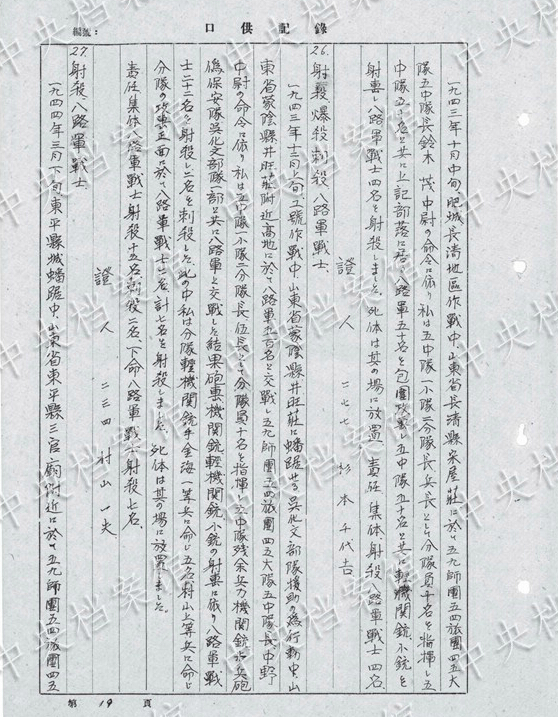 口供記錄
編號：
一九四三年十月中旬、肥城長清地区作戰中、山東省長清縣 屋莊に於て五九師團五四旅團四五大
隊五中隊長鈴木 茂中尉の命令に依り私は五中隊一小隊二分隊長、兵長として分隊員十名を指揮し五
中隊五十名と共に上記部落に 八路軍五十名を包圍攻撃し五中隊五十名と共に軽機関銃小銃を
射撃し八路軍戦士四名を射殺しました。死体は其の場に放置、責任 集体射殺八路軍戦士四名。
證人 二七七 杉本千代吉
26. 射殺、爆殺、刺殺八路軍戦士、
一九四三年十二月上旬 号作戰中、山東省蒙陰縣井旺莊に蟠踞せる吳化文部隊援助の為行動中、山
東省蒙陰縣井旺莊附近高地に於て八路軍 百名と交戦し五九師團五四旅團四五大隊五中隊長、中野
中尉の命令に依り私は五中隊一小隊二分隊長、伍長として分隊員十名を指揮し五中隊残余兵力機関銃 砲
偽保安隊吳化文部隊一部と共に八路軍と交戦した結果砲撃機関銃軽機関銃小銃の射撃に依り八路軍戦
士二十二名を射殺し二名を刺殺した。此の中私は分隊軽機関銃手金海一等兵に命じ五名村山上等兵に命じ
分隊の攻撃正面に於て八路軍戦士二名計七名を射殺しました。死体は其の場に放置しました。
責任集体八路軍戦士射殺十五名、刺殺二名、下命八路軍戦士射殺七名。
證人 二三四 村山一夫
27. 射殺八路軍戦士、
一九四四年三月下旬東平縣城蟠踞中、山東省東平縣三官廟附近に於て五九師團五四旅團四五
第 19 頁
中央档案馆